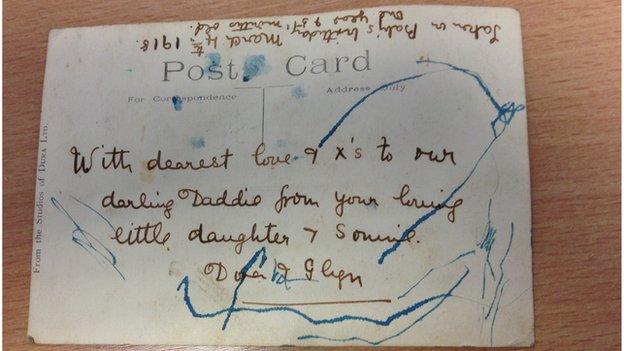 Taken on
Baby's birthday March 4th 1918.
one year & 5½ months old.
Post Card
For Correspondence
Address Only
With dearest love & x's to our
darling Daddie from your loving
little daughter & Sonnie.
Dora & Glyn
From the Studios of DURA LTD.